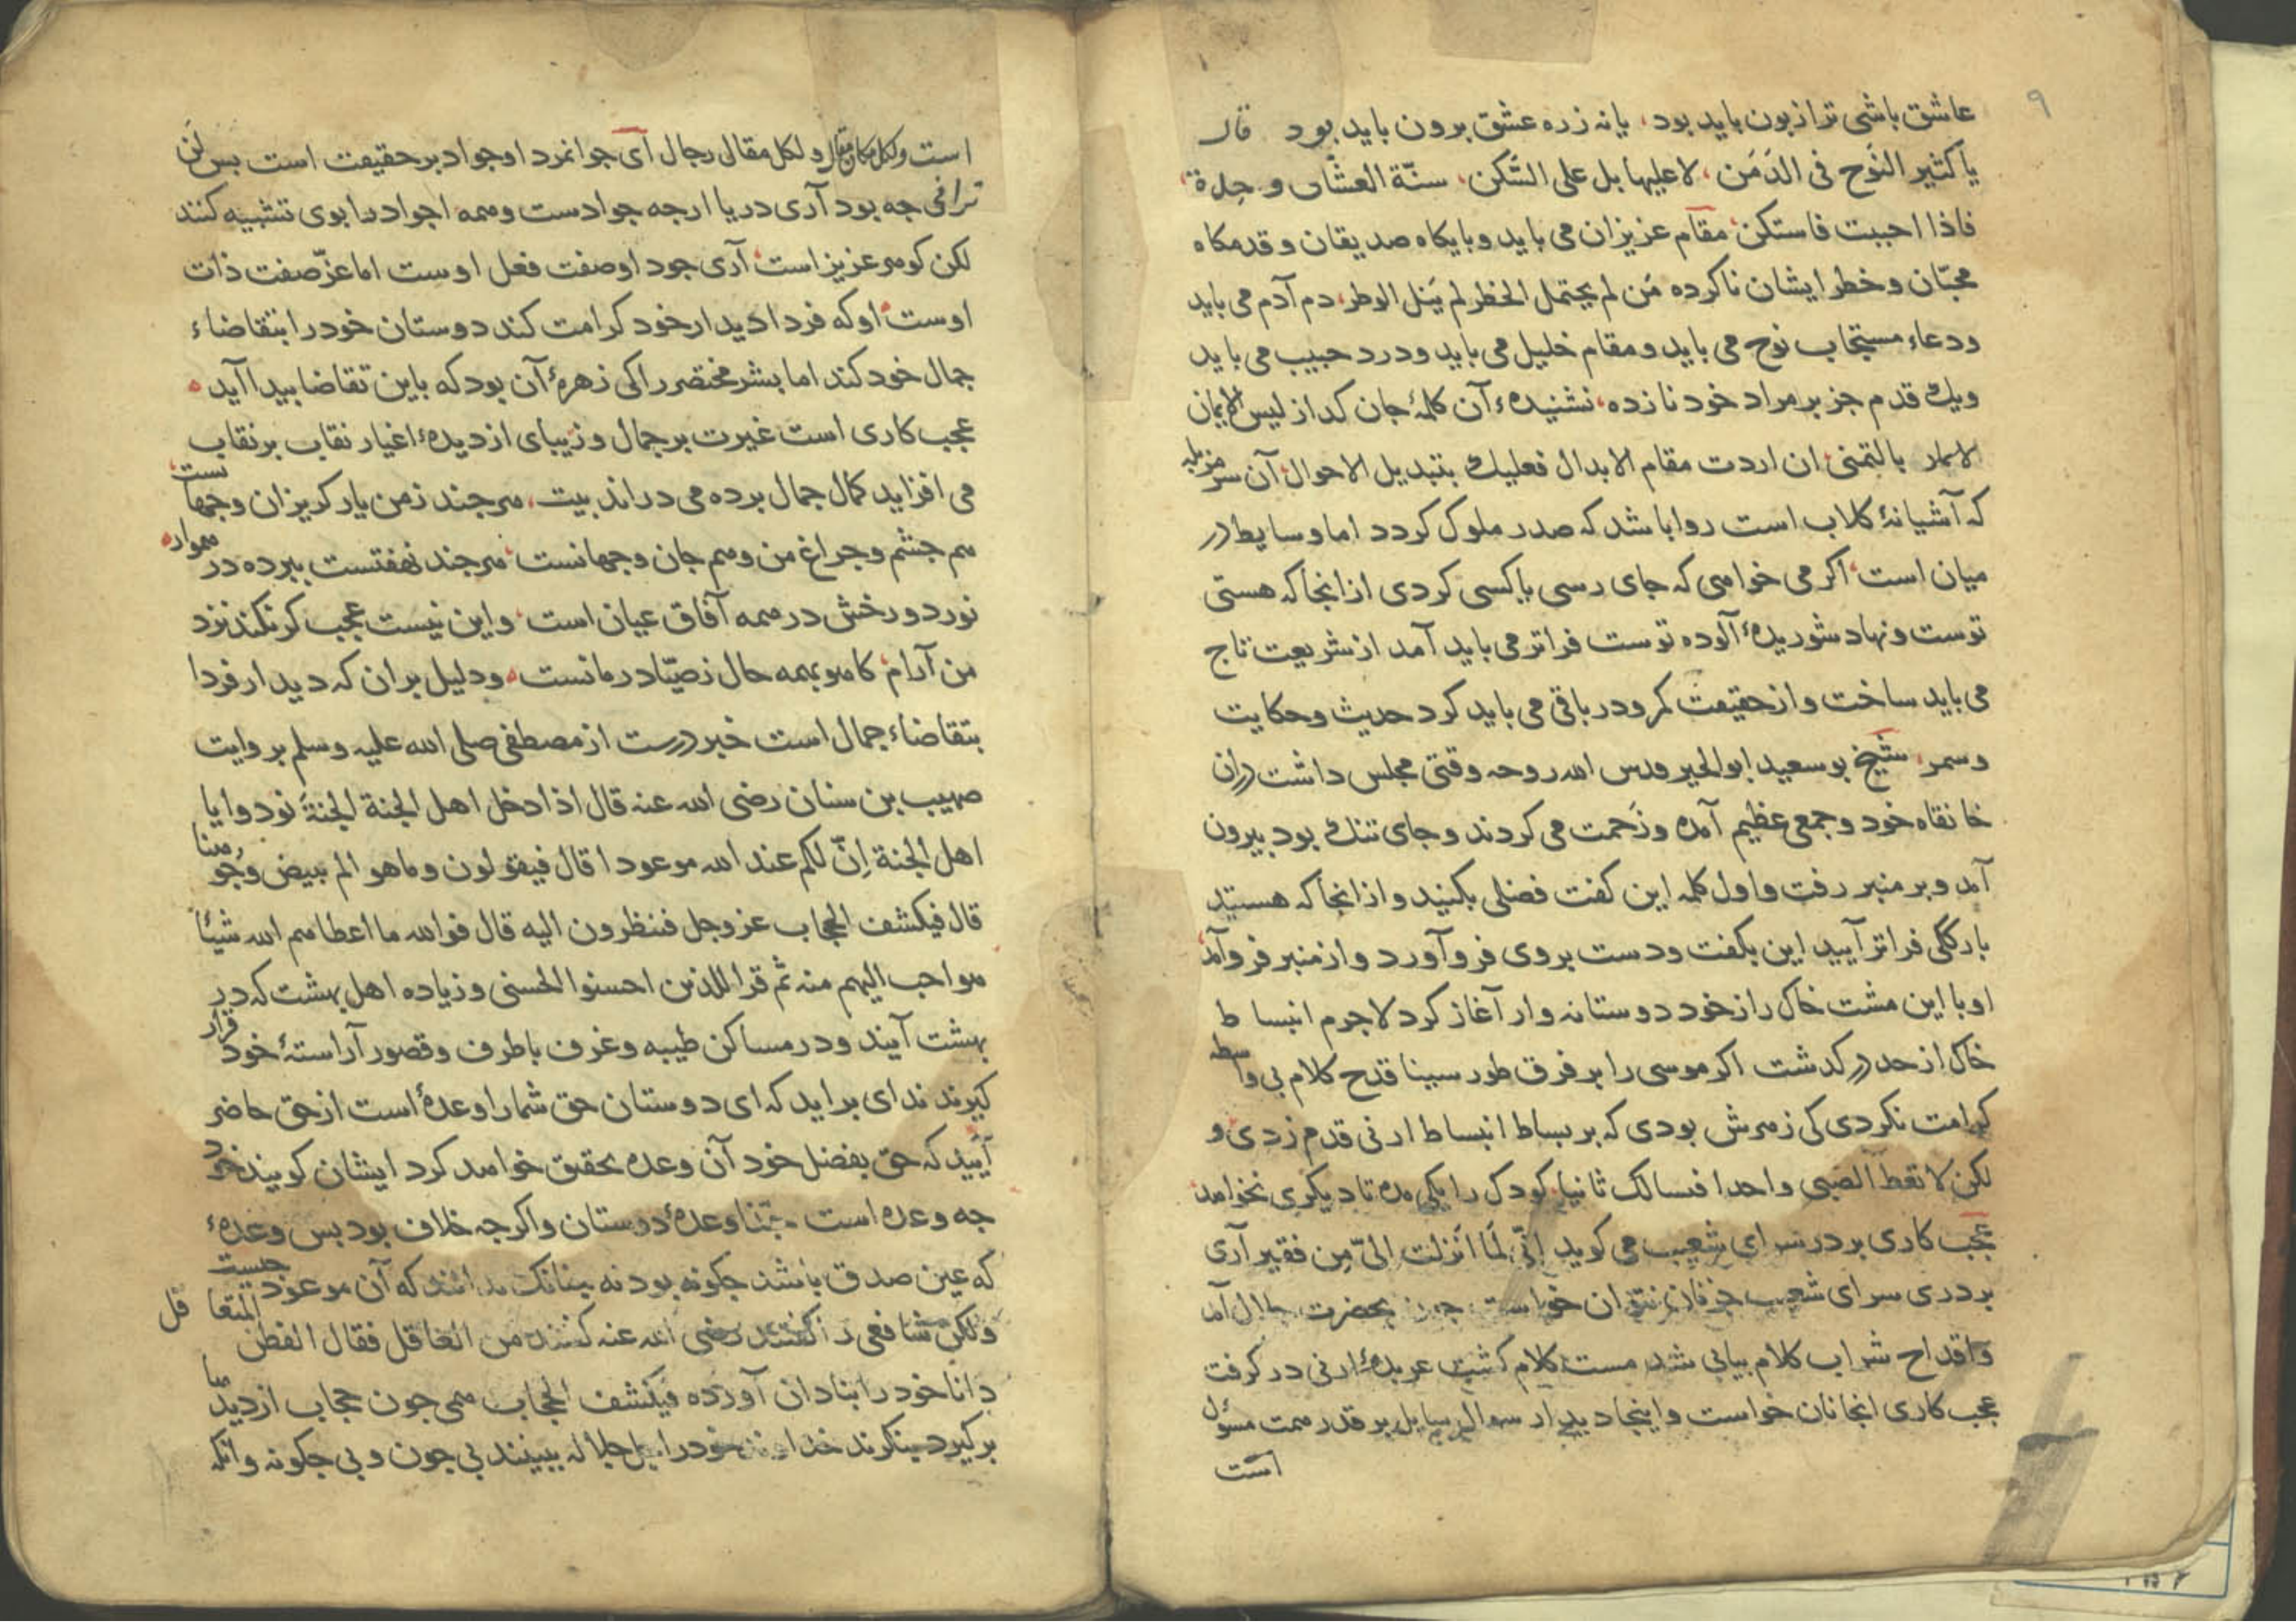 ۹
عاشق باشی ترا زبون باید بود، یا نه ز ره عشق برون باید بود قال
یا کثیر النَوح فی الدَمَن، لا علیها بل علی السَّکن، سنّة العشّاق وحدة،
فاذا احببت فاستکن، مقام عزیزان می باید و بایکاه صدیقان و قدمکاه
محبّان و خطر ایشان ناکرده مَن لم یحتمل الخطر لم یَنل الوطر، دم آدم می باید
ودعاء مستجاب نوح می باید و مقام خلیل می باید و درد حبیب می باید
ویک قدم جز بر مراد خود نازده، نشنیدهٔ آن کلمهٔ جان کداز لیس الایمان
بالتمنی، ان اردت مقام الابدال فعلیک بتبدیل الاحوال، آن سر مزبله
که آشیانهٔ کلاب است روا باشد که صدر ملوک کردد اما وسایط در
میان است، اکر می خواهی که جای رسی یا کسی کردی از انجا که هستی
توست و نهاد شوریدهٔ آلوده توست فراتر می باید آمد از شریعت تاج
می باید ساخت و از حقیقت کمر و در باقی می باید کرد حدیث و حکایت
وسمر، شیخ بو سعید ابو الخیر قدس الله روحه وقتی مجلس داشت در ان
خانقاه خود و جمعی عظیم آمده و زَحمت می کردند و جای تنک بود بیرون
آمد و بر منبر رفت و اول کلمه این کفت فضلی بکنید و از انجا که هستید
بارککی فراتر آیید این بکفت و دست بروی فرو آورد و از منبر فرو آمد،
او با این مشت خاک راز خود دوستانه وار آغاز کرد لاجرم انبساط
خاک از حد در کدشت اکر موسی را بر فرق طور سینا قدح کلام بی واسطه
کرامت نکردی کی زهرش بودی که بر بساط انبساط ارنی قدم زدی و
لکن لا تعط الصبی واحدا فسالک ثانیا، کودک را یکی مده تا دیکری نخواهد،
عجب کاری بر در سرای شعیب می کوید اِنّی لَمَا انَزلت الیّ مِن فقیر آری
بر دری سرای شعیب جز نان نتوان خواست چون بحضرت جلال آمد
واقداح شراب کلام بیانی شد مست کلام کشت عربدهٔ ارنی در کرفت
عجب کاری انجا نان خواست و اینجا دیدار سوال سایل بر قدر همت مسؤل
است
است ولکل مکان مقال و لکل مقال رجال آی جوانمرد او جواد بر حقیقت است بس لَن
ترانی جه بود آری دریا ارجه جوادست و همه اجواد را بوی تشبیه کنند
لکن کوهر عزیز است، آری جود او صفت فعل اوست اما عزّ صفت ذات
اوست، او که فردا دیدار خود کرامت کند دوستان خود را بتقاضاء
جمال خود کند اما بشر مختصر را کی زهرهٔ آن بود که باین تقاضا بیدا آید
عجب کاری است غیرت بر جمال و زیبای از دیدهٔ اغیار نقاب بر نقاب
می افزاید کمال جمال برده می دراند بیت، هر جند ز من یار کریزان و جهانست،
هم جشم و جراغ من و هم جان و جهانست، هر جند نهفتست ببرده در همواره
نور دو رخش در همه آفاق عیان است، و این نیست عجب کو نکند نزد
من آرام، کاهو بهمه حال ز صیّاد رمانست، و دلیل بر ان که دیدار فردا
بتقاضاء جمال است خبر درست از مصطفی صلی الله علیه وسلم بروایت
صهیب بن سنان رضی الله عنه قال اذا دخل اهل الجنة الجنةَ نودوا یا
اهل الجنة اِنّ لکم عند الله موعودا قال فیقولون وما هو الم یبیض وُجوهنا
قال فیکشف الحجاب عز وجل فننظرون الیه قال فوالله ما اعطاهم الله شیئاً
هو احب الیهم منه ثم قرا للذین احسنوا الحسنی و زیاده اهل بهشت که در
بهشت آیند و در مساکن طیبه و غرف با طرف و قصور آراستهٔ خود قرار
کیرند ندای براید که ای دوستان حق شمارا وعدهٔ است از حق حاضر
آیَید که حق بفضل خود آن وعده تحقیق خواهد کرد ایشان کویند خود
جه وعده است وعدهٔ دوستان و اکرجه خلاف بود بس وعدهٔ
که عین صدق باشد جکونه بود نه بینانک ندانند که آن موعود جیست
ولکن شافعی را کفتند رضی الله عنه کفتند من العاقل فقال الفطن المتغافل
دانا خود را بنادان آورده فیکشف الحجاب همی جون حجاب از دیدها
بر کیرد بنکرند خداوند خود را جل جلاله ببینند بی جون و بی جکونه و انکه